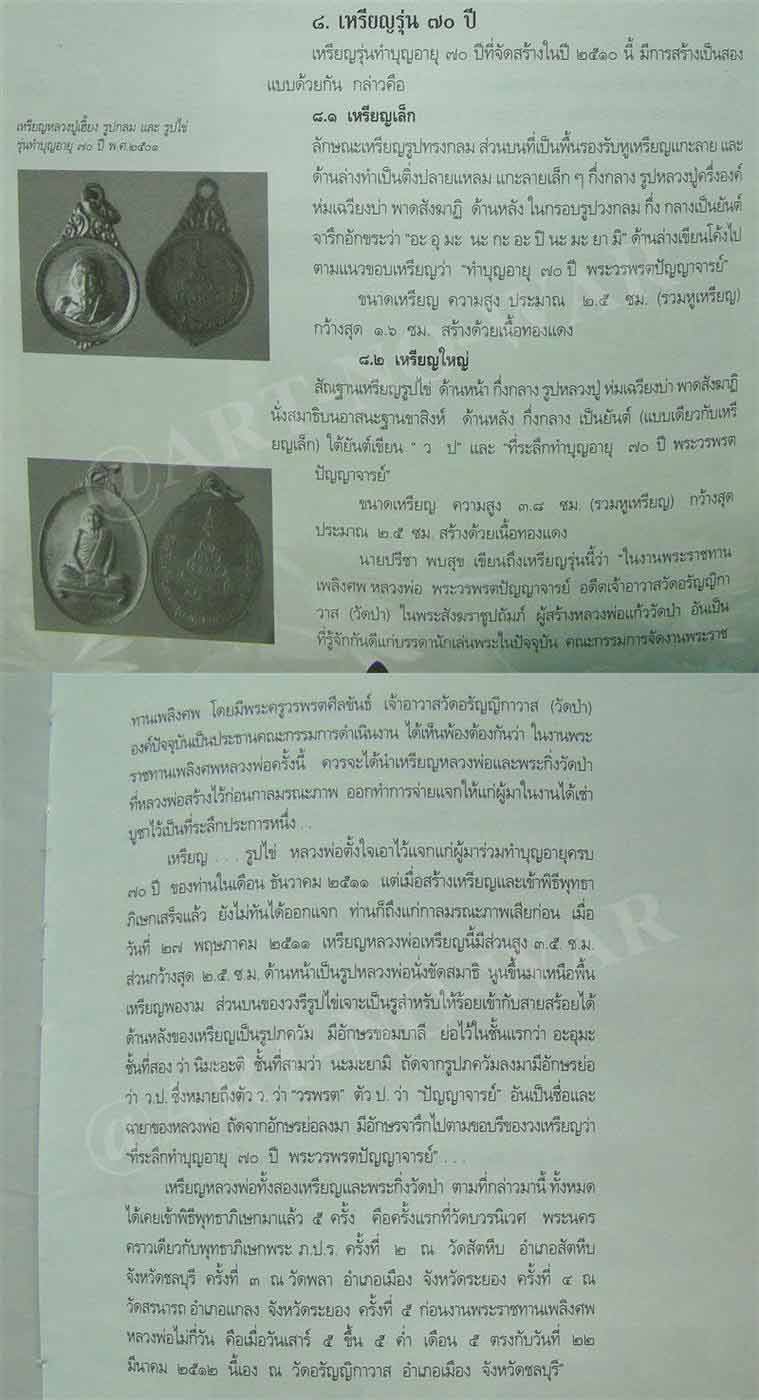 ๘. เหรียญรุ่น ๗๐ ปี
เหรียญรุ่นทำบุญอายุ ๗๐ ปีที่จัดสร้างในปี ๒๕๑๐ นี้ มีการสร้างเป็นสอง
แบบด้วยกัน กล่าวคือ
๘.๑ เหรียญเล็ก
เหรียญหลวงปู่เฮี้ยง รูปกลม และ รูปไข่
รุ่นทำบุญอายุ ๗๐ ปี พ.ศ.๒๕๐๑
ลักษณะเหรียญรูปทรงกลม ส่วนบนที่เป็นพื้นรองรับหูเหรียญแกะลาย และ
ด้านล่างทำเป็นติ่งปลายแหลม แกะลายเล็ก ๆ กึ่งกลาง รูปหลวงปู่ครึ่งองค์
ห่มเฉวียงบ่า พาดสังฆาฏิ ด้านหลัง ในกรอบรูปวงกลม กึ่ง กลางเป็นยันต์
จารึกอักขระว่า "อะ อุ มะ นะ กะ อะ ปิ นะ มะ ยา มิ" ด้านล่างเขียนโค้งไป
ตามแนวขอบเหรียญว่า "ทำบุญอายุ ๗๐ ปี พระวรพรตปัญญาจารย์"
ขนาดเหรียญ ความสูง ประมาณ ๒.๕ ซม. (รวมหูเหรียญ)
กว้างสุด ๑.๖ ซม. สร้างด้วยเนื้อทองแดง
๘.๒ เหรียญใหญ่
สัณฐานเหรียญรูปไข่ ด้านหน้า กึ่งกลาง รูปหลวงปู่ ห่มเฉวียงบ่า พาดสังฆาฏิ
นั่งสมาธิบนอาสนะฐานขาสิงห์ ด้านหลัง กึ่งกลาง เป็นยันต์ (แบบเดียวกับเหรี
ยญเล็ก) ใต้ยันต์เขียน " ว ป" และ "ที่ระลึกทำบุญอายุ ๗๐ ปี พระวรพรต
ปัญญาจารย์"
ขนาดเหรียญ ความสูง ๓.๘ ซม. (รวมหูเหรียญ) กว้างสุด
ประมาณ ๒.๕ ซม. สร้างด้วยเนื้อทองแดง
นายปรีชา พบสุข เขียนถึงเหรียญรุ่นนี้ว่า "ในงานพระราชทาน
เพลิงศพ หลวงพ่อ พระวรพรตปัญญาจารย์ อดีตเจ้าอาวาสวัดอรัญญิกา
วาส (วัดป่า) ในพระสังฆราชูปถัมภ์ ผู้สร้างหลวงพ่อแก้ววัดป่า อันเป็น
ที่รู้จักกันดีแก่บรรดานักเล่นพระในปัจจุบัน คณะกรรมการจัดงานพระราช
ทานเพลิงศพ โดยมีพระครูวรพรตศีลขันธ์ เจ้าอาวาสวัดอรัญญิกาวาส (วัดป่า)
องค์ปัจจุบันเป็นประธานคณะกรรมการดำเนินงาน ได้เห็นพ้องต้องกันว่า ในงานพระ
ราชทานเพลิงศพหลวงพ่อครั้งนี้ ควรจะได้นำเหรียญหลวงพ่อและพระกิ่งวัดป่า
ที่หลวงพ่อสร้างไว้ก่อนกาลมรณะภาพ ออกทำการจ่ายแจกให้แก่ผู้มาในงานได้เช่า
บูชาไว้เป็นที่ระลึกประการหนึ่ง . .
เหรียญ . . . รูปไข่ หลวงพ่อตั้งใจเอาไว้แจกแก่ผู้มาร่วมทำบุญอายุครบ
๗๐ ปี ของท่านในเดือน ธันวาคม ๒๕๑๑ แต่เมื่อสร้างเหรียญและเข้าพิธีพุทธา
ภิเษกเสร็จแล้ว ยังไม่ทันได้ออกแจก ท่านก็ถึงแก่กาลมรณะภาพเสียก่อน เมื่อ
วันที่ ๒๗ พฤษภาคม ๒๕๑๑ เหรียญหลวงพ่อเหรียญนี้มีส่วนสูง ๓.๕ ซ.ม.
ส่วนกว้างสุด ๒.๕ ซ.ม. ด้านหน้าเป็นรูปหลวงพ่อนั่งขัดสมาธิ นูนขึ้นมาเหนือพื้น
เหรียญพองาม ส่วนบนของวงรีรูปไข่เจาะเป็นรูสำหรับให้ร้อยเข้ากับสายสร้อยได้
ด้านหลังของเหรียญเป็นรูปภควัม มีอักษรขอมบาลี ย่อไว้ในชั้นแรกว่า อะอุมะ
ชั้นที่สอง ว่า นิมะอะติ ชั้นที่สามว่า นะมะยามิ ถัดจากรูปภควัมลงมามีอักษรย่อ
ว่า ว.ป. ซึ่งหมายถึงตัว ว. ว่า "วรพรต" ตัว ป. ว่า "ปัญญาจารย์" อันเป็นชื่อและ
ฉายาของหลวงพ่อ ถัดจากอักษรย่อลงมา มีอักษรจารึกไปตามขอบรีของวงเหรียญว่า
"ที่ระลึกทำบุญอายุ ๗๐ ปี พระวรพรตปัญญาจารย์" . . .
เหรียญหลวงพ่อทั้งสองเหรียญและพระกิ่งวัดป่า ตามที่กล่าวมานี้ ทั้งหมด
ได้เคยเข้าพิธีพุทธาภิเษกมาแล้ว ๕ ครั้ง คือครั้งแรกที่วัดบวรนิเวศ พระนคร
คราวเดียวกับพุทธาภิเษกพระ ภ.ป.ร. ครั้งที่ ๒ ณ วัดสัตหีบ อำเภอสัตหีบ
จังหวัดชลบุรี ครั้งที่ ๓ ณ วัดพลา อำเภอเมือง จังหวัดระยอง ครั้งที่ ๔ ณ
วัดสรนารถ อำเภอแกลง จังหวัดระยอง ครั้งที่ ๕ ก่อนงานพระราชทานเพลิงศพ
หลวงพ่อไม่กี่วัน คือเมื่อวันเสาร์ ๕ ขึ้น ๕ ค่ำ เดือน ๕ ตรงกับวันที่ ๒๒
มีนาคม ๒๕๑๒ นี้เอง ณ วัดอรัญญิกาวาส อำเภอเมือง จังหวัดชลบุรี"